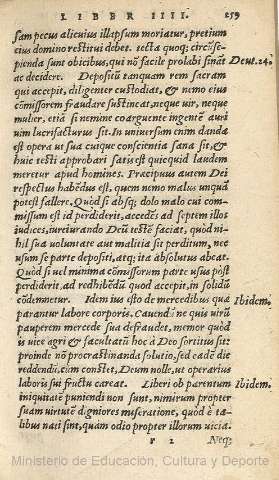 LIBER IIII. 259
sam pecus alicuius illapsum moriatur, pretium
eius domino restitui debet. tecta quoq; circũse-
pienda sunt obicibus, qui nõ facile prolabi sinãt Deut. 24.
ac decidere. Depositũ tanquam rem sacram
qui accepit, diligenter custodiat, & nemo eius
cõmissorem fraudare sustineat, neque uir, neque
mulier, etiã si nemine coarguente ingentẽ auri
uim lucrifacturus sit. In uniuersum enim danda
est opera ut sua cuique conscientia sana sit, &
huic testi approbari satis est quicquid laudem
meretur apud homines. Præcipuus autem Dei
respectus habẽdus est, quem nemo malus unquã
potest fallere. Quòd si absq; dolo malo cui com-
missum est id perdiderit, accedẽs ad septem illos
iudices, iurciurando Deũ testẽ faciat, quòd ni-
hil sua uoluntate aut malitia sit perditum, nec
usum se parte depositi, atq; ita absolutus abeat.
Quòd si uel minima cõmissorum parte usus post
perdiderit, ad redhibẽdũ quod accepit, in solidũ
cõdemnetur. Idem ius esto de mercedibus quæ Ibidem.
parantur labore corporis. Cauendũ ne quis virũ
pauperem mercede sua defraudet, memor quòd
is vice agri & facultatũ hoc à Deo sortitus sit:
proinde nõ procrastinanda solutio, sed eadẽ die
reddendũ, cùm constet, Deum nolle, ut operarius
laboris sui fructu careat. Liberi ob parentum Ibidem.
iniquitatẽ puniendi non sunt, nimirum propter
suam virtutẽ digniores miseratione, quòd è ta-
libus nati sint, quàm odio propter illorum vicia.
r 2 Neq;
Ministerio de Educación, Cultura y Deporte